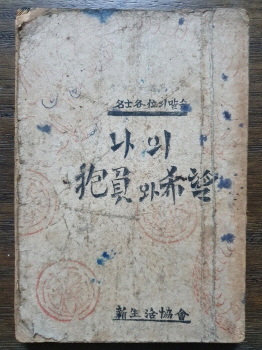 名士各位의말슴
나의
抱負와希望
新生活協會